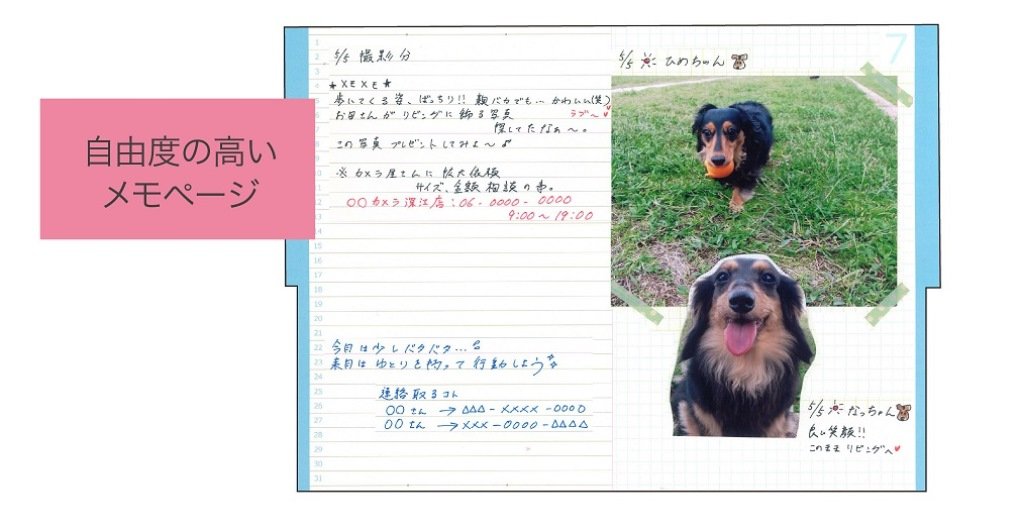 自由度の高い
メモページ
1
2
3
4
5
6
7
8
9
10
11
12
13
14
15
16
17
18
19
20
21
22
23
24
25
26
27
28
29
30
31
5/5 撮影分
★メモメモ★
歩いてくる姿、ばっちり!! 親バカでも… かわいい(笑)
お母さんがリビングに飾る写真 ラブ〜♥
探してたなぁ〜。
この写真 プレゼントしてみよ〜♪
※ カメラ屋さんに拡大依頼
サイズ、金額 相談の事。
○○カメラ深江店:06-0000-0000
9:00〜19:00
今月は少しバタバタ…
来月はゆとりを持って行動しよう
連絡取るコト
○○さん →△△△-××××-0000
○○さん →×××-0000-△△△△
7
5/5 ひめちゃん
5/5 なっちゃん
良い笑顔!!
このまま リビングへ♥